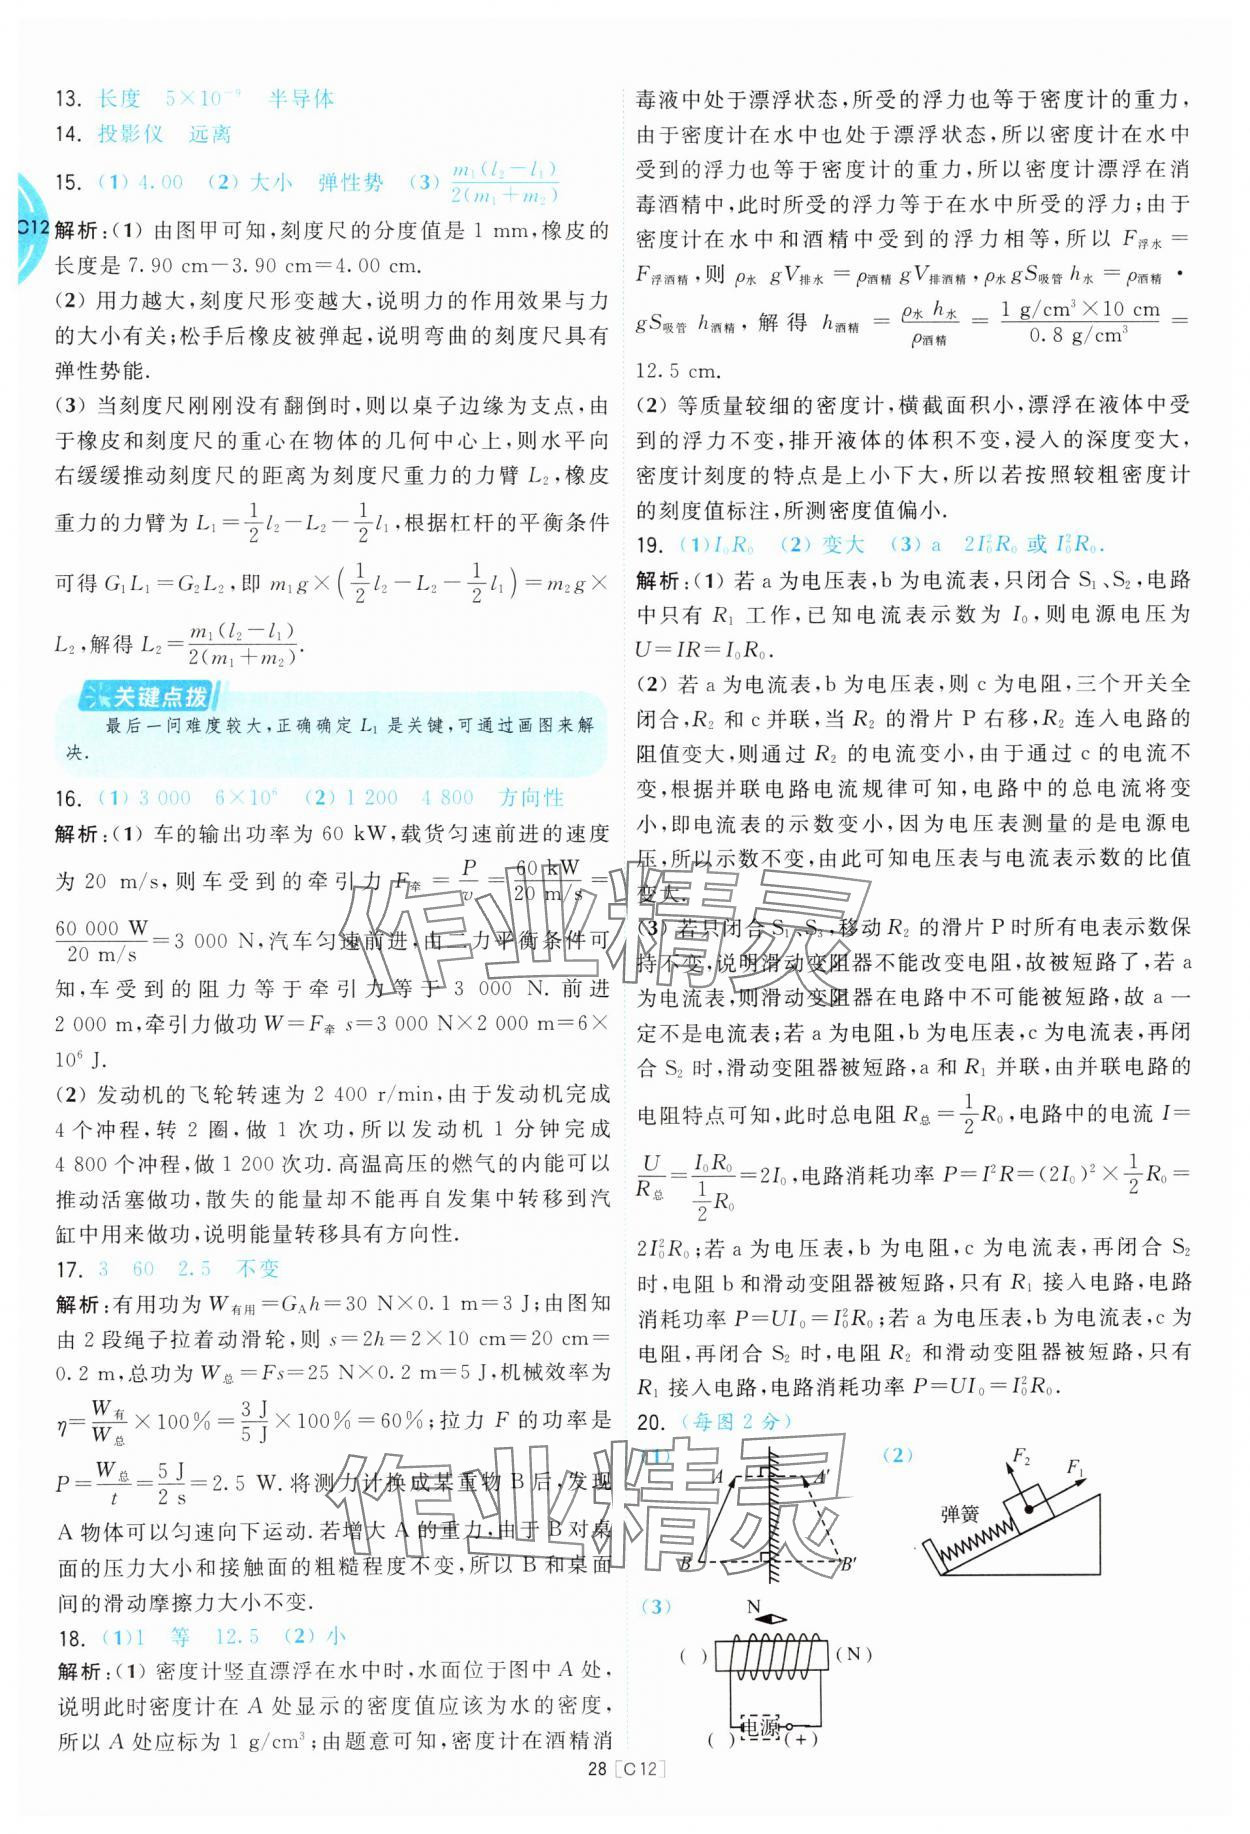 13. 长度 5×10⁻⁹ 半导体
14. 投影仪 远离
15. (1) 4.00 (2) 大小 弹性势 (3) m₁(l₂−l₁)/2(m₁+m₂)
C12
解析:(1) 由图甲可知,刻度尺的分度值是 1 mm,橡皮的
长度是 7.90 cm−3.90 cm=4.00 cm.
(2) 用力越大,刻度尺形变越大,说明力的作用效果与力
的大小有关;松手后橡皮被弹起,说明弯曲的刻度尺具有
弹性势能.
(3) 当刻度尺刚刚没有翻倒时,则以桌子边缘为支点,由
于橡皮和刻度尺的重心在物体的几何中心上,则水平向
右缓缓推动刻度尺的距离为刻度尺重力的力臂 L₂,橡皮
重力的力臂为 L₁=1/2 l₂−L₂−1/2 l₁,根据杠杆的平衡条件
可得 G₁L₁=G₂L₂,即 m₁g×(1/2 l₂−L₂−1/2 l₁)=m₂g×
L₂,解得 L₂=m₁(l₂−l₁)/2(m₁+m₂).
关键点拨
最后一问难度较大,正确确定 L₁ 是关键,可通过画图来解
决.
16. (1) 3 000 6×10⁶ (2) 1 200 4 800 方向性
解析:(1) 车的输出功率为 60 kW,载货匀速前进的速度
为 20 m/s,则车受到的牵引力 F牵=P/v=60 kW/20 m/s=
60 000 W/20 m/s=3 000 N,汽车匀速前进,由二力平衡条件可
知,车受到的阻力等于牵引力等于 3 000 N. 前进
2 000 m,牵引力做功 W=F牵 s=3 000 N×2 000 m=6×
10⁶ J.
(2) 发动机的飞轮转速为 2 400 r/min,由于发动机完成
4 个冲程,转 2 圈,做 1 次功,所以发动机 1 分钟完成
4 800 个冲程,做 1 200 次功.高温高压的燃气的内能可以
推动活塞做功,散失的能量却不能再自发集中转移到汽
缸中用来做功,说明能量转移具有方向性.
17. 3 60 2.5 不变
解析:有用功为 W有用=G_A h=30 N×0.1 m=3 J;由图知
由 2 段绳子拉着动滑轮,则 s=2h=2×10 cm=20 cm=
0.2 m,总功为 W总=Fs=25 N×0.2 m=5 J,机械效率为
η=W有/W总×100%=3 J/5 J×100%=60%;拉力 F 的功率是
P=W总/t=5 J/2 s=2.5 W.将测力计换成某重物 B 后,发现
A 物体可以匀速向下运动.若增大 A 的重力,由于 B 对桌
面的压力大小和接触面的粗糙程度不变,所以 B 和桌面
间的滑动摩擦力大小不变.
18. (1)1 等 12.5 (2) 小
解析:(1) 密度计竖直漂浮在水中时,水面位于图中 A 处,
说明此时密度计在 A 处显示的密度值应该为水的密度,
所以 A 处应标为 1 g/cm³;由题意可知,密度计在酒精消
毒液中处于漂浮状态,所受的浮力也等于密度计的重力,
由于密度计在水中也处于漂浮状态,所以密度计在水中
受到的浮力也等于密度计的重力,所以密度计漂浮在消
毒酒精中,此时所受的浮力等于在水中所受的浮力;由于
密度计在水中和酒精中受到的浮力相等,所以 F浮水=
F浮酒精,则 ρ水 gV排水=ρ酒精 gV排酒精,ρ水 gS吸管 h水=ρ酒精·
gS吸管 h酒精,解得 h酒精=ρ水 h水/ρ酒精=1 g/cm³×10 cm/0.8 g/cm³=
12.5 cm.
(2) 等质量较细的密度计,横截面积小,漂浮在液体中受
到的浮力不变,排开液体的体积不变,浸入的深度变大,
密度计刻度的特点是上小下大,所以若按照较粗密度计
的刻度值标注,所测密度值偏小.
19. (1)I₀R₀ (2) 变大 (3) a 2I₀²R₀ 或 I₀²R₀.
解析:(1) 若 a 为电压表,b 为电流表,只闭合 S₁、S₂,电路
中只有 R₁ 工作,已知电流表示数为 I₀,则电源电压为
U=IR=I₀R₀.
(2) 若 a 为电流表,b 为电压表,则 c 为电阻,三个开关全
闭合,R₂ 和 c 并联,当 R₂ 的滑片 P 右移,R₂ 连入电路的
阻值变大,则通过 R₂ 的电流变小,由于通过 c 的电流不
变,根据并联电路电流规律可知,电路中的总电流将变
小,即电流表的示数变小,因为电压表测量的是电源电
压,所以示数不变,由此可知电压表与电流表示数的比值
变大.
(3) 若只闭合 S₁、S₃,移动 R₂ 的滑片 P 时所有电表示数保
持不变,说明滑动变阻器不能改变电阻,故被短路了,若 a
为电流表,则滑动变阻器在电路中不可能被短路,故 a 一
定不是电流表;若 a 为电阻,b 为电压表,c 为电流表,再闭
合 S₂ 时,滑动变阻器被短路,a 和 R₁ 并联,由并联电路的
电阻特点可知,此时总电阻 R总=1/2 R₀,电路中的电流 I=
U/R总=I₀R₀/(1/2 R₀)=2I₀,电路消耗功率 P=I²R=(2I₀)²×1/2 R₀=
2I₀²R₀;若 a 为电压表,b 为电阻,c 为电流表,再闭合 S₂
时,电阻 b 和滑动变阻器被短路,只有 R₁ 接入电路,电路
消耗功率 P=UI₀=I₀²R₀;若 a 为电压表,b 为电流表,c 为
电阻,再闭合 S₂ 时,电阻 R₂ 和滑动变阻器被短路,只有
R₁ 接入电路,电路消耗功率 P=UI₀=I₀²R₀.
20. (每图 2 分)
(1) A A′ B B′
(2) F₂ F₁ 弹簧
(3) N
( ) (N)
( ) 电源 (+)
28 [C12]
作业精灵
作业精灵